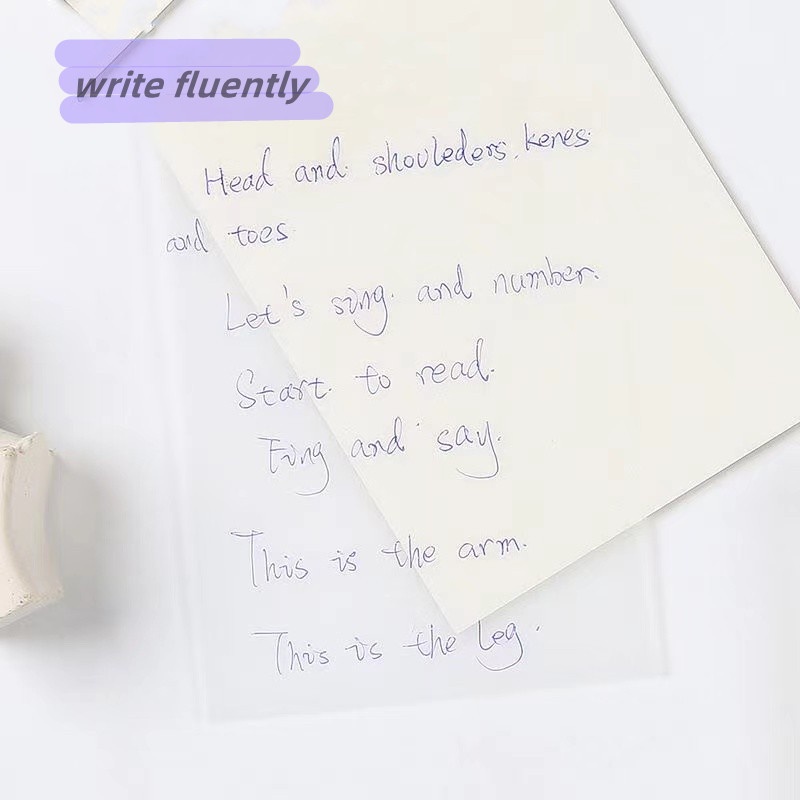 write fluently
Head and shouleders, kenes
and toes
Let's sing and number.
Start to read.
Fing and say.
This is the arm.
This is the leg.